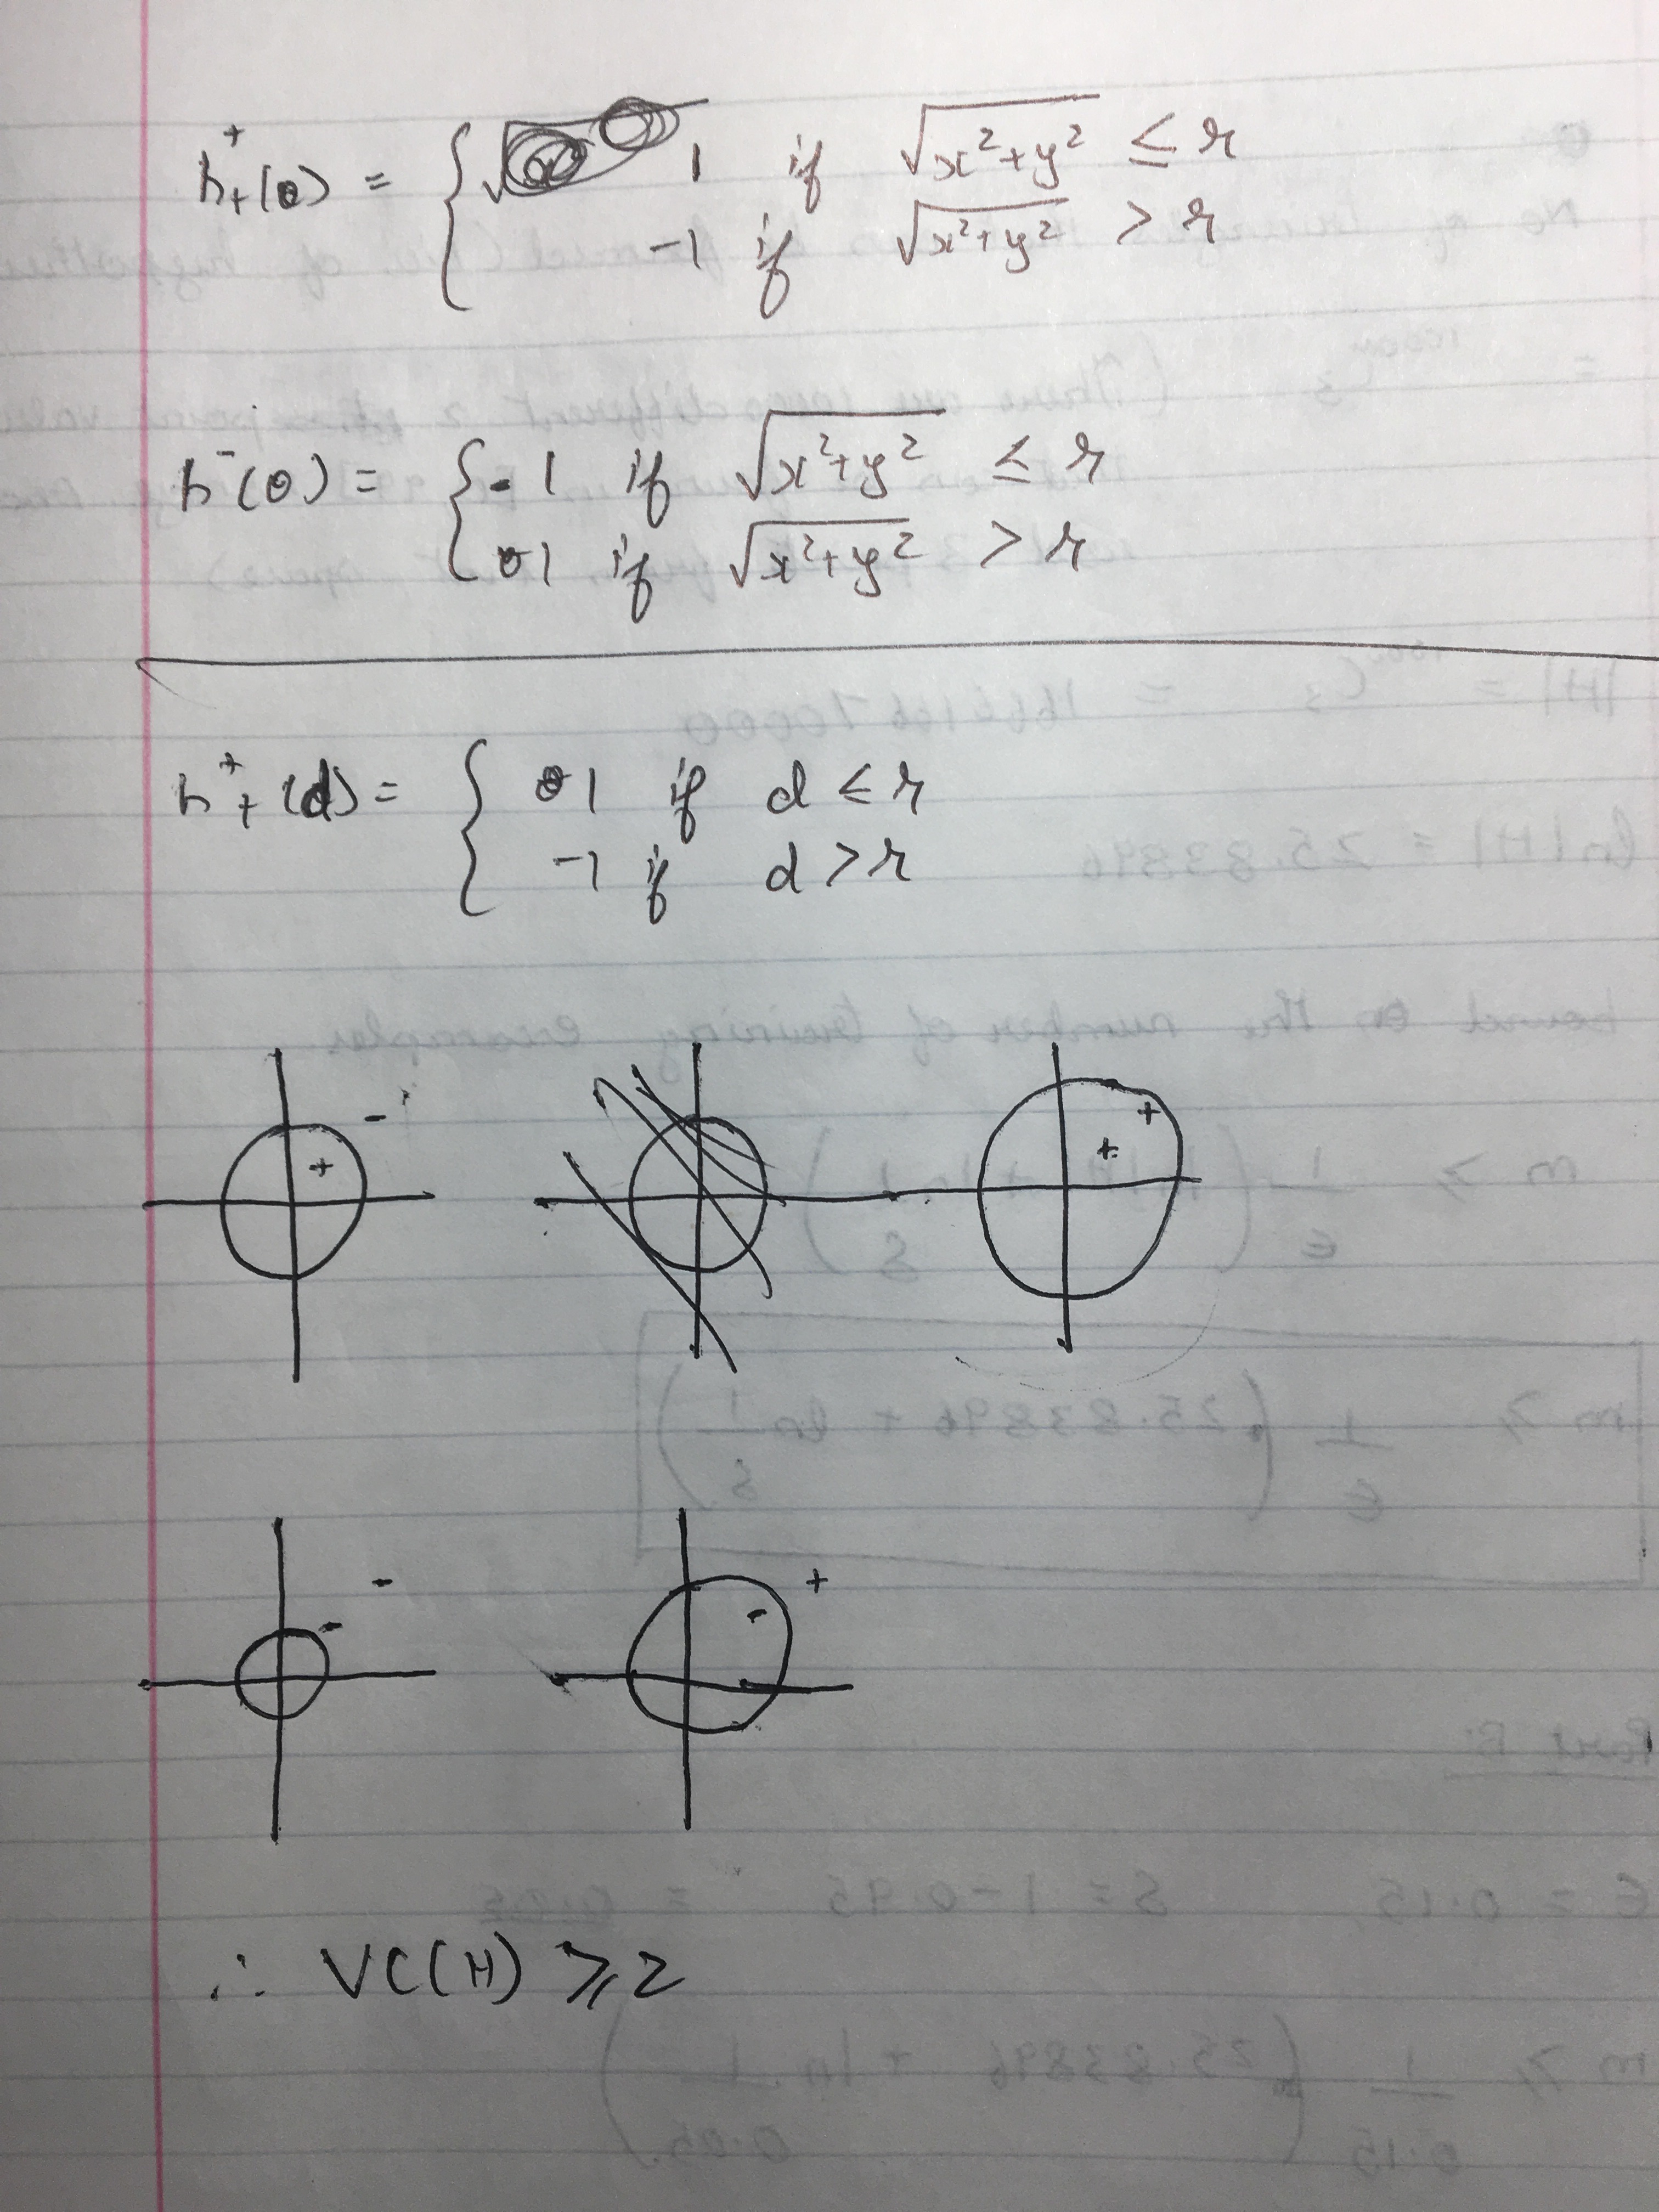 h₊⁺(θ) = { 1 if √(x²+y²) ≤ r
-1 if √(x²+y²) > r
h⁻(θ) = { -1 if √(x²+y²) ≤ r
1 if √(x²+y²) > r
h₊⁺(d) = { 1 if d ≤ r
-1 if d > r
- +
+ +
- +
- -
∴ VC(H) ≥ 2